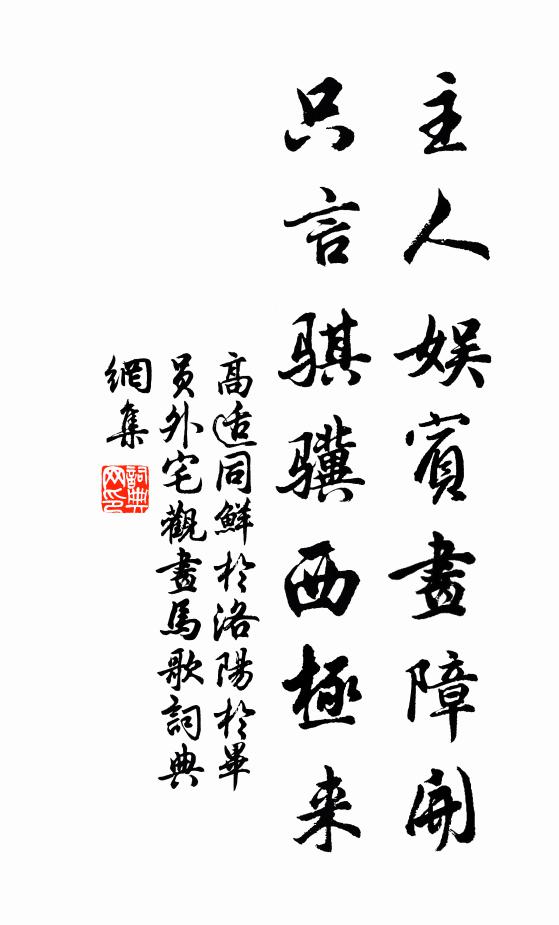 主人娱賓畫障開
只言騏驥西極来
高适同鮮於洛陽於畢
員外宅觀畫馬歌詞典
網集
詞典網印